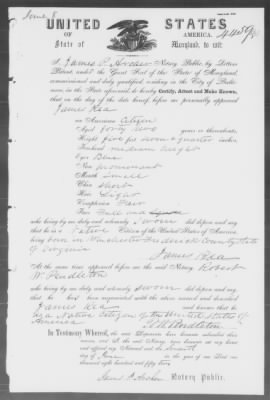 June 8
UNITED STATES
OF AMERICA.
State of Maryland, to wit:
I, James P. Archer Notary Public, by Letters
Patent, under the Great Seal of the State of Maryland,
commissioned and duly qualified, residing in the City of
in the State aforesaid, do hereby Certify, Attest and Make Known,
that on the day of the date hereof, before me personally appeared
James Rea
an American Citizen
Aged forty two years or thereabouts,
Height five feet seven & quarter inches
Forehead medium height
Eyes
Nose prominent
Mouth Small
Chin Short
Hair Light
Complexion Fair
Face Full and
who being by me duly and solemnly Sworn did depose and say
that he is a Native Citizen of the United States of America
being born in Winchester Frederick County State
of Virginia
James Rea
At the same time appeared before me the said Notary Robert
W. Pendleton
who being by me duly and solemnly Sworn did depose and say
that he has been acquainted with the above named and described
James Rea and knows that he
is a Native Citizen of the United States of
America
R W Pendleton
In Testimony Whereof, the said Deponents have hereunto subscribed their
names and I, the said Notary, have hereunto set my hand
and affixed my Notarial Seal, the Seventh
day of June in the year of our Lord one
thousand eight hundred and fifty
James P. Archer Notary Public.